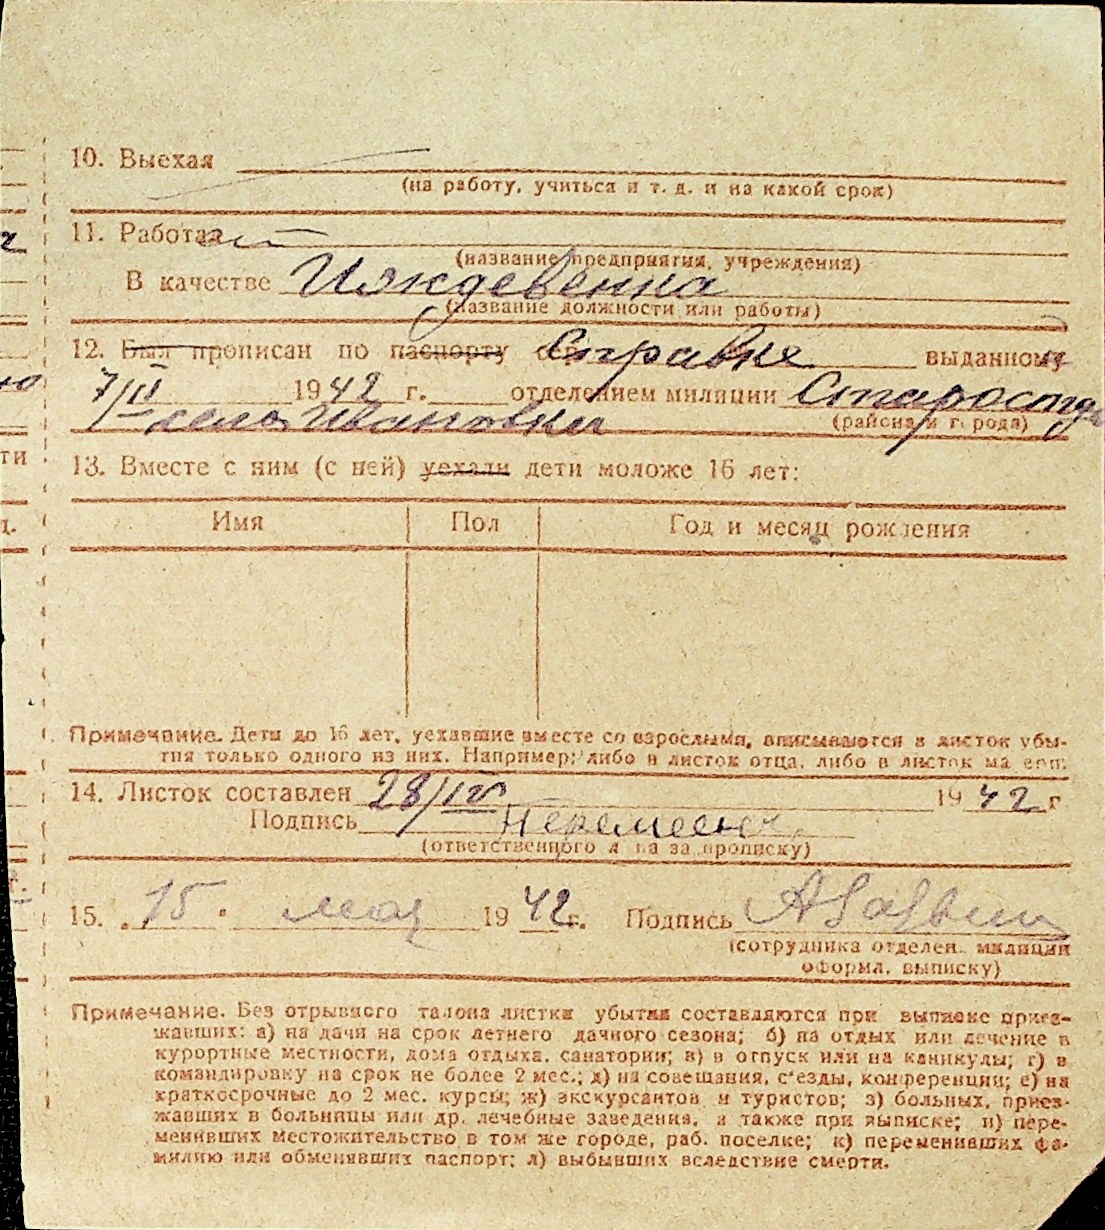 10. Выехал
(на работу, учиться и т. д. и на какой срок)
11. Работал
(название предприятия, учреждения)
В качестве Иждевенка
(название должности или работы)
12. Был прописан по паспорту Справке выданному
7/III 1942 г. отделением милиции Старостой
села Ивановки (района и города)
13. Вместе с ним (с ней) уехали дети моложе 16 лет:
Имя Пол Год и месяц рождения
Примечание. Дети до 16 лет, уехавшие вместе со взрослыми, вписываются в листок убы-
тия только одного из них. Например: либо в листок отца, либо в листок матери.
14. Листок составлен 28/IV 1942 г
Подпись
(ответственного л-ца за прописку)
15. 15. мая 1942 г. Подпись
(сотрудника отделен. милиции
оформл. выписку)
Примечание. Без отрывного талона листки убытия составляются при выписке приез-
жавших: а) на дачи на срок летнего дачного сезона; б) на отдых или лечение в
курортные местности, дома отдыха, санатории; в) в отпуск или на каникулы; г) в
командировку на срок не более 2 мес.; д) на совещания, с'езды, конференции; е) на
краткосрочные до 2 мес. курсы; ж) экскурсантов и туристов; з) больных, приез-
жавших в больницы или др. лечебные заведения, а также при выписке; и) пере-
менивших местожительство в том же городе, раб. поселке; к) переменивших фа-
милию или обменявших паспорт; л) выбывших вследствие смерти.